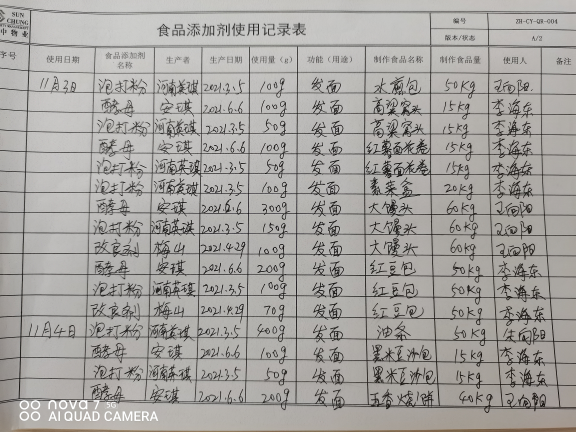 SUN
CHUNG
中物业
食品添加剂使用记录表
编号 ZH-CY-QR-004
版本/状态 A/2
序号 使用日期 食品添加剂名称 生产者 生产日期 使用量（g） 功能（用途） 制作食品名称 制作食品量 使用人 备注
11月3日 泡打粉 河南英琪 2021.3.5 100g 发面 水煎包 50kg 王向阳
酵母 安琪 2021.6.6 100g 发面 高粱窝头 15kg 李海东
泡打粉 河南英琪 2021.3.5 50g 发面 高粱窝头 15kg 李海东
酵母 安琪 2021.6.6 100g 发面 红薯面花卷 15kg 李海东
泡打粉 河南英琪 2021.3.5 50g 发面 红薯面花卷 15kg 李海东
泡打粉 河南英琪 2021.3.5 100g 发面 素菜盒 20kg 李海东
酵母 安琪 2021.6.6 300g 发面 大馒头 60kg 王向阳
泡打粉 河南英琪 2021.3.5 150g 发面 大馒头 60kg 王向阳
改良剂 梅山 2021.4.29 100g 发面 大馒头 60kg 王向阳
酵母 安琪 2021.6.6 200g 发面 红豆包 50kg 李海东
泡打粉 河南英琪 2021.3.5 100g 发面 红豆包 50kg 李海东
改良剂 梅山 2021.4.29 70g 发面 红豆包 50kg 李海东
11月4日 泡打粉 河南英琪 2021.3.5 400g 发面 油条 50kg 王向阳
酵母 安琪 2021.6.6 100g 发面 黑米豆沙包 15kg 李海东
泡打粉 河南英琪 2021.3.5 50g 发面 黑米豆沙包 15kg 李海东
酵母 安琪 2021.6.6 200g 发面 五香烧饼 40kg 王向阳
nova 7 5G
AI QUAD CAMERA